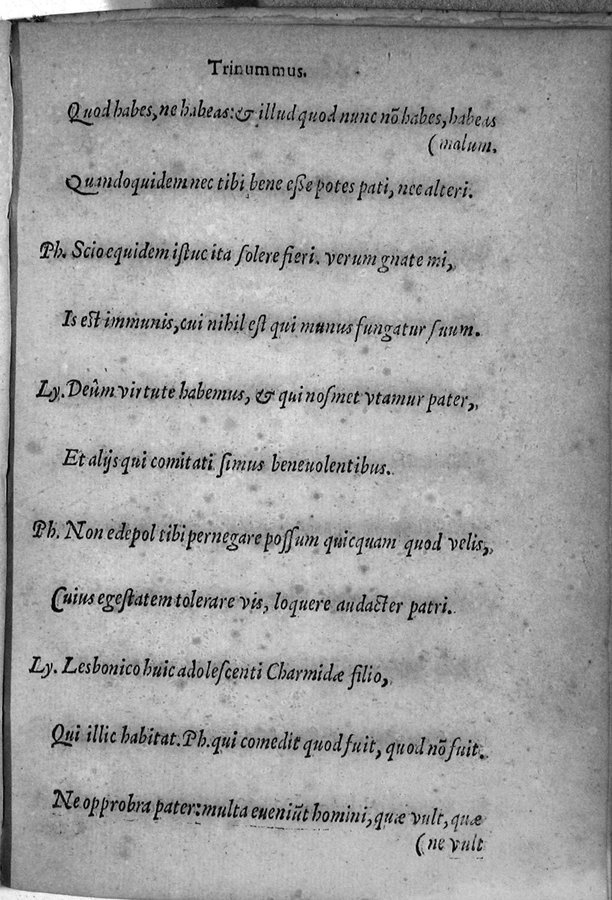 Trinummus.
Quod habes, ne habeas: & illud quod nunc nõ habes, habeas
(malum.
Quandoquidem nec tibi bene esse potes pati, nec alteri.
Ph. Scio equidem istuc ita solere fieri. verum gnate mi,
Is est immunis, cui nihil est qui munus fungatur suum.
Ly. Deûm virtute habemus, & qui nosmet vtamur pater,
Et alijs qui comitati simus beneuolentibus.
Ph. Non edepol tibi pernegare possum quicquam quod velis,
Cuius egestatem tolerare vis, loquere audacter patri.
Ly. Lesbonico huic adolescenti Charmidæ filio,
Qui illic habitat. Ph. qui comedit quod fuit, quod nõ fuit.
Ne opprobra pater: multa eueniũt homini, quæ vult, quæ
(ne vult